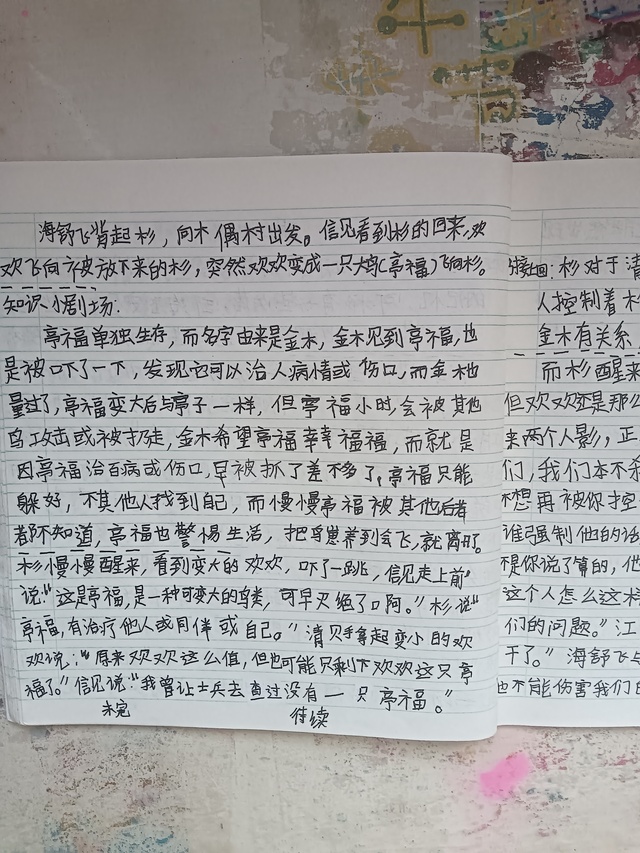 海舒飞背起杉，向木偶村出发。信见看到杉的回来，欢
欢飞向被放下来的杉，突然欢欢变成一只大鸟(亭福)飞向杉。
知识小剧场:
亭福单独生存，而名字由来是金木，金木见到亭福，也
是被吓了一下，发现它可以治人病情或伤口，而金木他
量过了，亭福变大后与亭子一样，但亭福小时，会被其他
鸟攻击或被扔走，金木希望亭福幸幸福福，而就是
因亭福治百病或伤口，早被抓了差不多了，亭福只能
躲好，不其他人找到自己，而慢慢亭福被其他后者
都不知道，亭福也警惕生活，把鸟崽养到会飞，就离开。
杉慢慢醒来，看到变大的欢欢，吓了一跳，信见走上前
说:“这是亭福，是一种可变大的鸟类，可早灭绝了口阿。”杉说“
亭福，有治疗他人或同伴或自己。”清贝手拿起变小的欢
欢说:“原来欢欢这么值，但也可能只剩下欢欢这只亭
福了。”信见说:“我曾让士兵去查过没有一只亭福。”
未完 待续
接上回: 杉对于清
人控制着木
金木有关系，
而杉醒来
但欢欢还是那么
来两个人影，正
们，我们本不
不想再被你控
谁强制他的话
不是你说了算的，他
这个人怎么这样
们的问题。”江
干了。”海舒飞与
他不能伤害我们的